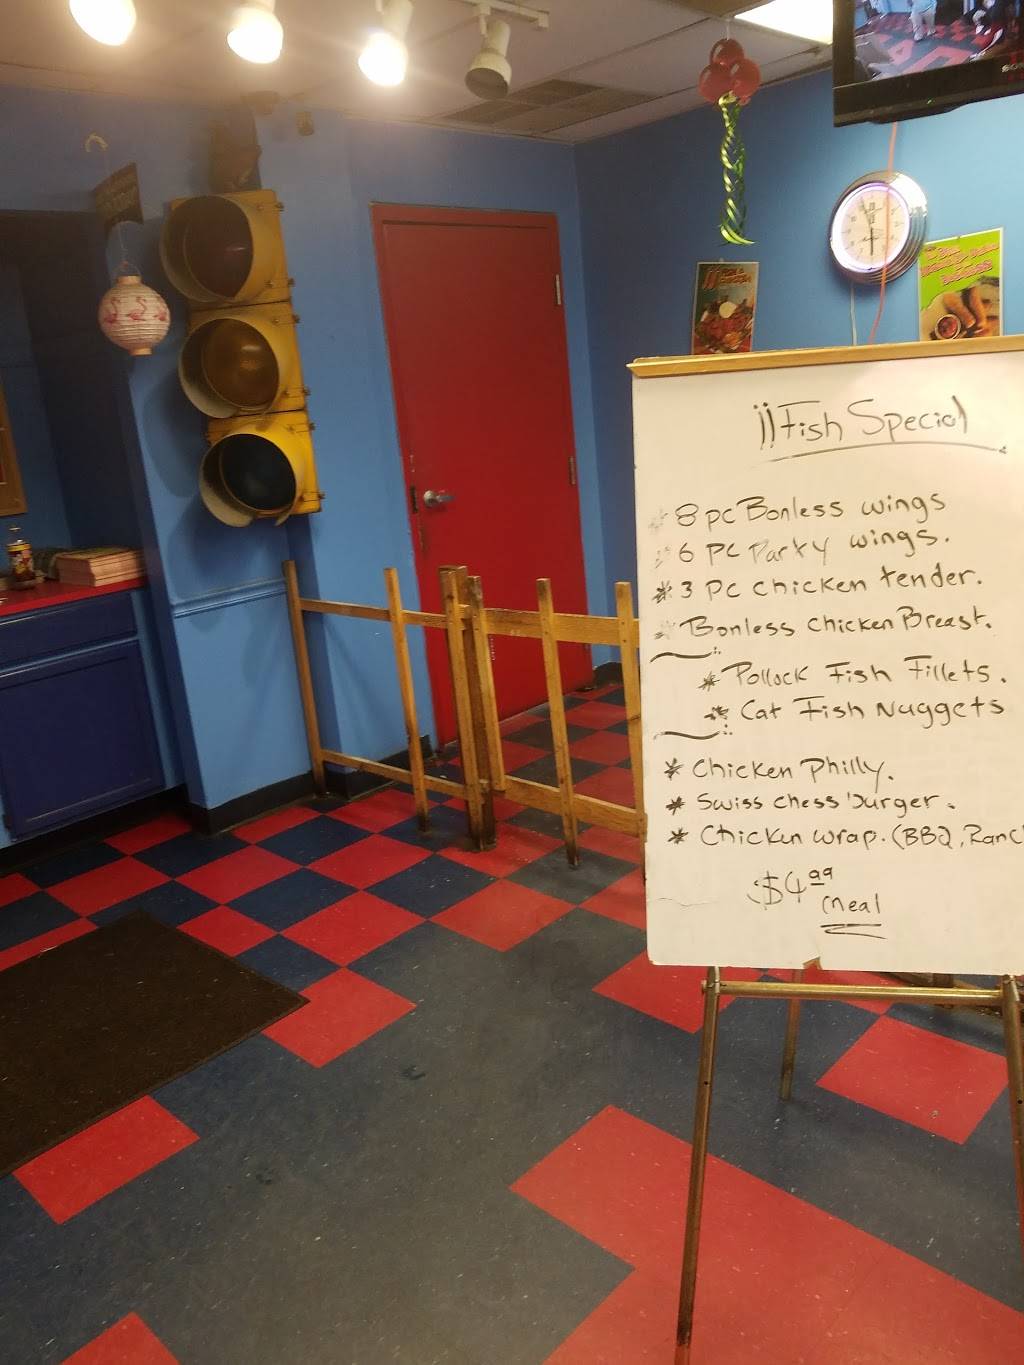 jjFish Special
* 8 pc Bonless wings
* 6 pc Party wings.
* 3 pc chicken tender.
* Bonless chicken Breast.
* Pollock Fish Fillets.
* Cat Fish Nuggets
* Chicken Philly.
* Swiss chess burger.
* Chicken wrap. (BBQ, Ranc
$4.99
meal